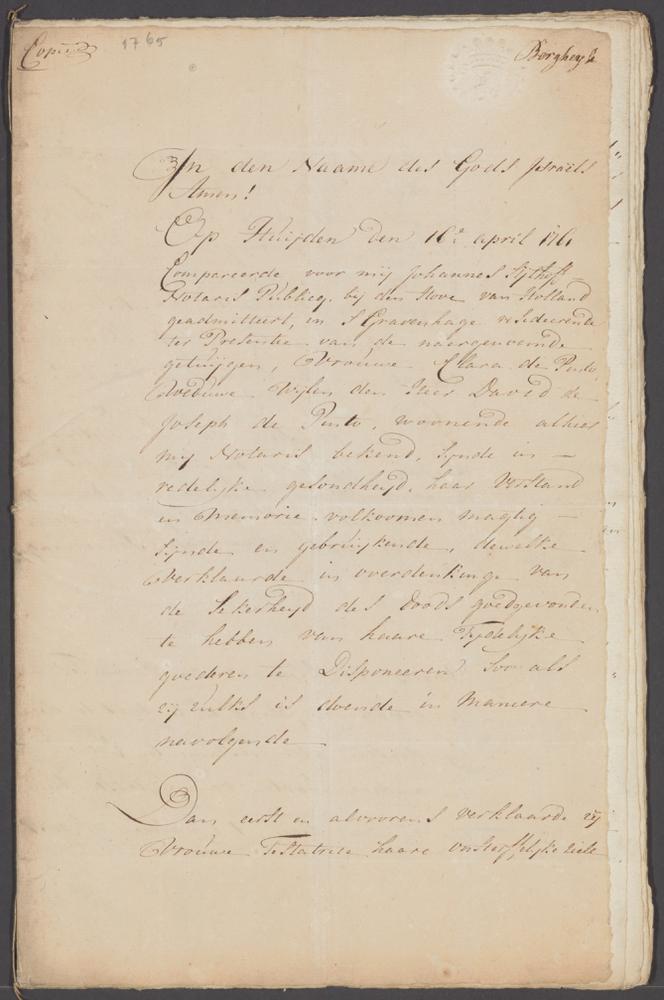 Copie
1765
Borgheyk
In den Naame des Gods Israëls
Amen!
Op Huijden den 16e april 1761
Compareerde voor mij Johannes Sijthoff
Notaris Publicq, bij den Hove van Holland
geadmitteert, in S'Gravenhage resideerende
ter Presentie van de naergenoemde
getuijgen, Vrouwe Clara de Pinto,
Weduwe Wijlen den Heer David de
Joseph de Pinto, woonende alhier
mij Notaris bekend, sijnde in
redelijke gesondheijd, haar Verstand
en Memorie volkoomen magtig
sijnde en gebruijkende, dewelke
Verklaarde in overdenkinge van
de Sekerheijd des doods goedgevonden
te hebben van haare Tijdelijke
goederen te Disponeeren soo als
zij zulks is doende in Maniere
navolgende
Dan eerst en alvoorens verklaarde zij
Vrouwe Testatrice haare onsterffelijke ziele